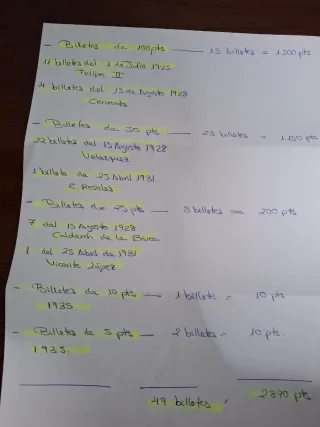 - Billetes de 100 pts — 15 billetes = 1500 pts
11 billetes del 1 de Julio 1925
Felipe II
4 billetes del 15 de Agosto 1928
Cervantes
- Billetes de 50 pts — 23 billetes = 1.150 pts
22 billetes del 15 Agosto 1928
Velazquez
1 billete de 25 Abril 1931
E. Rosales
- Billetes de 25 pts — 8 billetes = 200 pts
7 del 15 Agosto 1928
Calderón de la Barca
1 del 25 Abril de 1931
Vicente López
- Billetes de 10 pts — 1 billete = 10 pts
1935
- Billetes de 5 pts — 2 billetes = 10 pts.
1935
49 billetes = 2870 pts